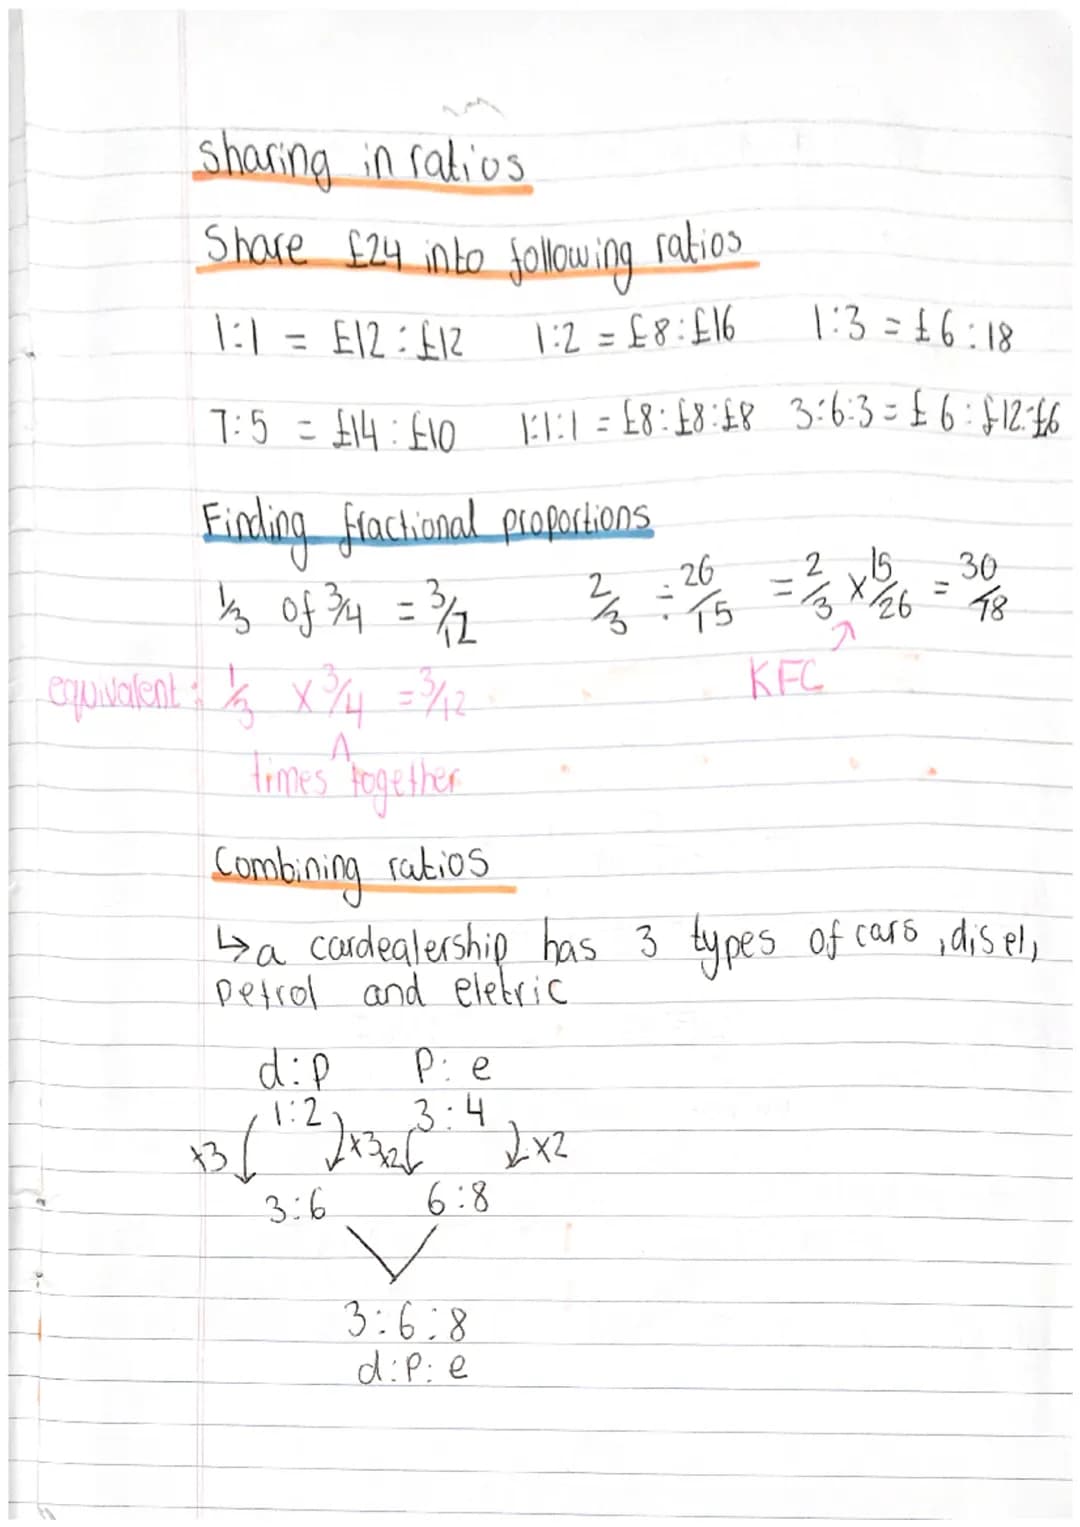 sharing in ratios
Share £24 into following ratios
1:1 = £12 : £12 1:2 = £8 : £16 1:3 = £6 : 18
7:5 = £14 : £10 1:1:1 = £8 : £8 : £8 3:6:3 = £6 : £12 : £6
Finding fractional proportions
1/3 of 3/4 = 3/12 2/3 ÷ 26/15 = 2/3 × 15/26 = 30/78
equivalent : 1/3 × 3/4 = 3/12 KFC
times together
Combining ratios
↳ a cardealership has 3 types of cars , disel,
petrol and eletric
d:p P: e
1:2 3:4
×3 ×3 ×2 ×2
3:6 6:8
3:6:8
d:P: e